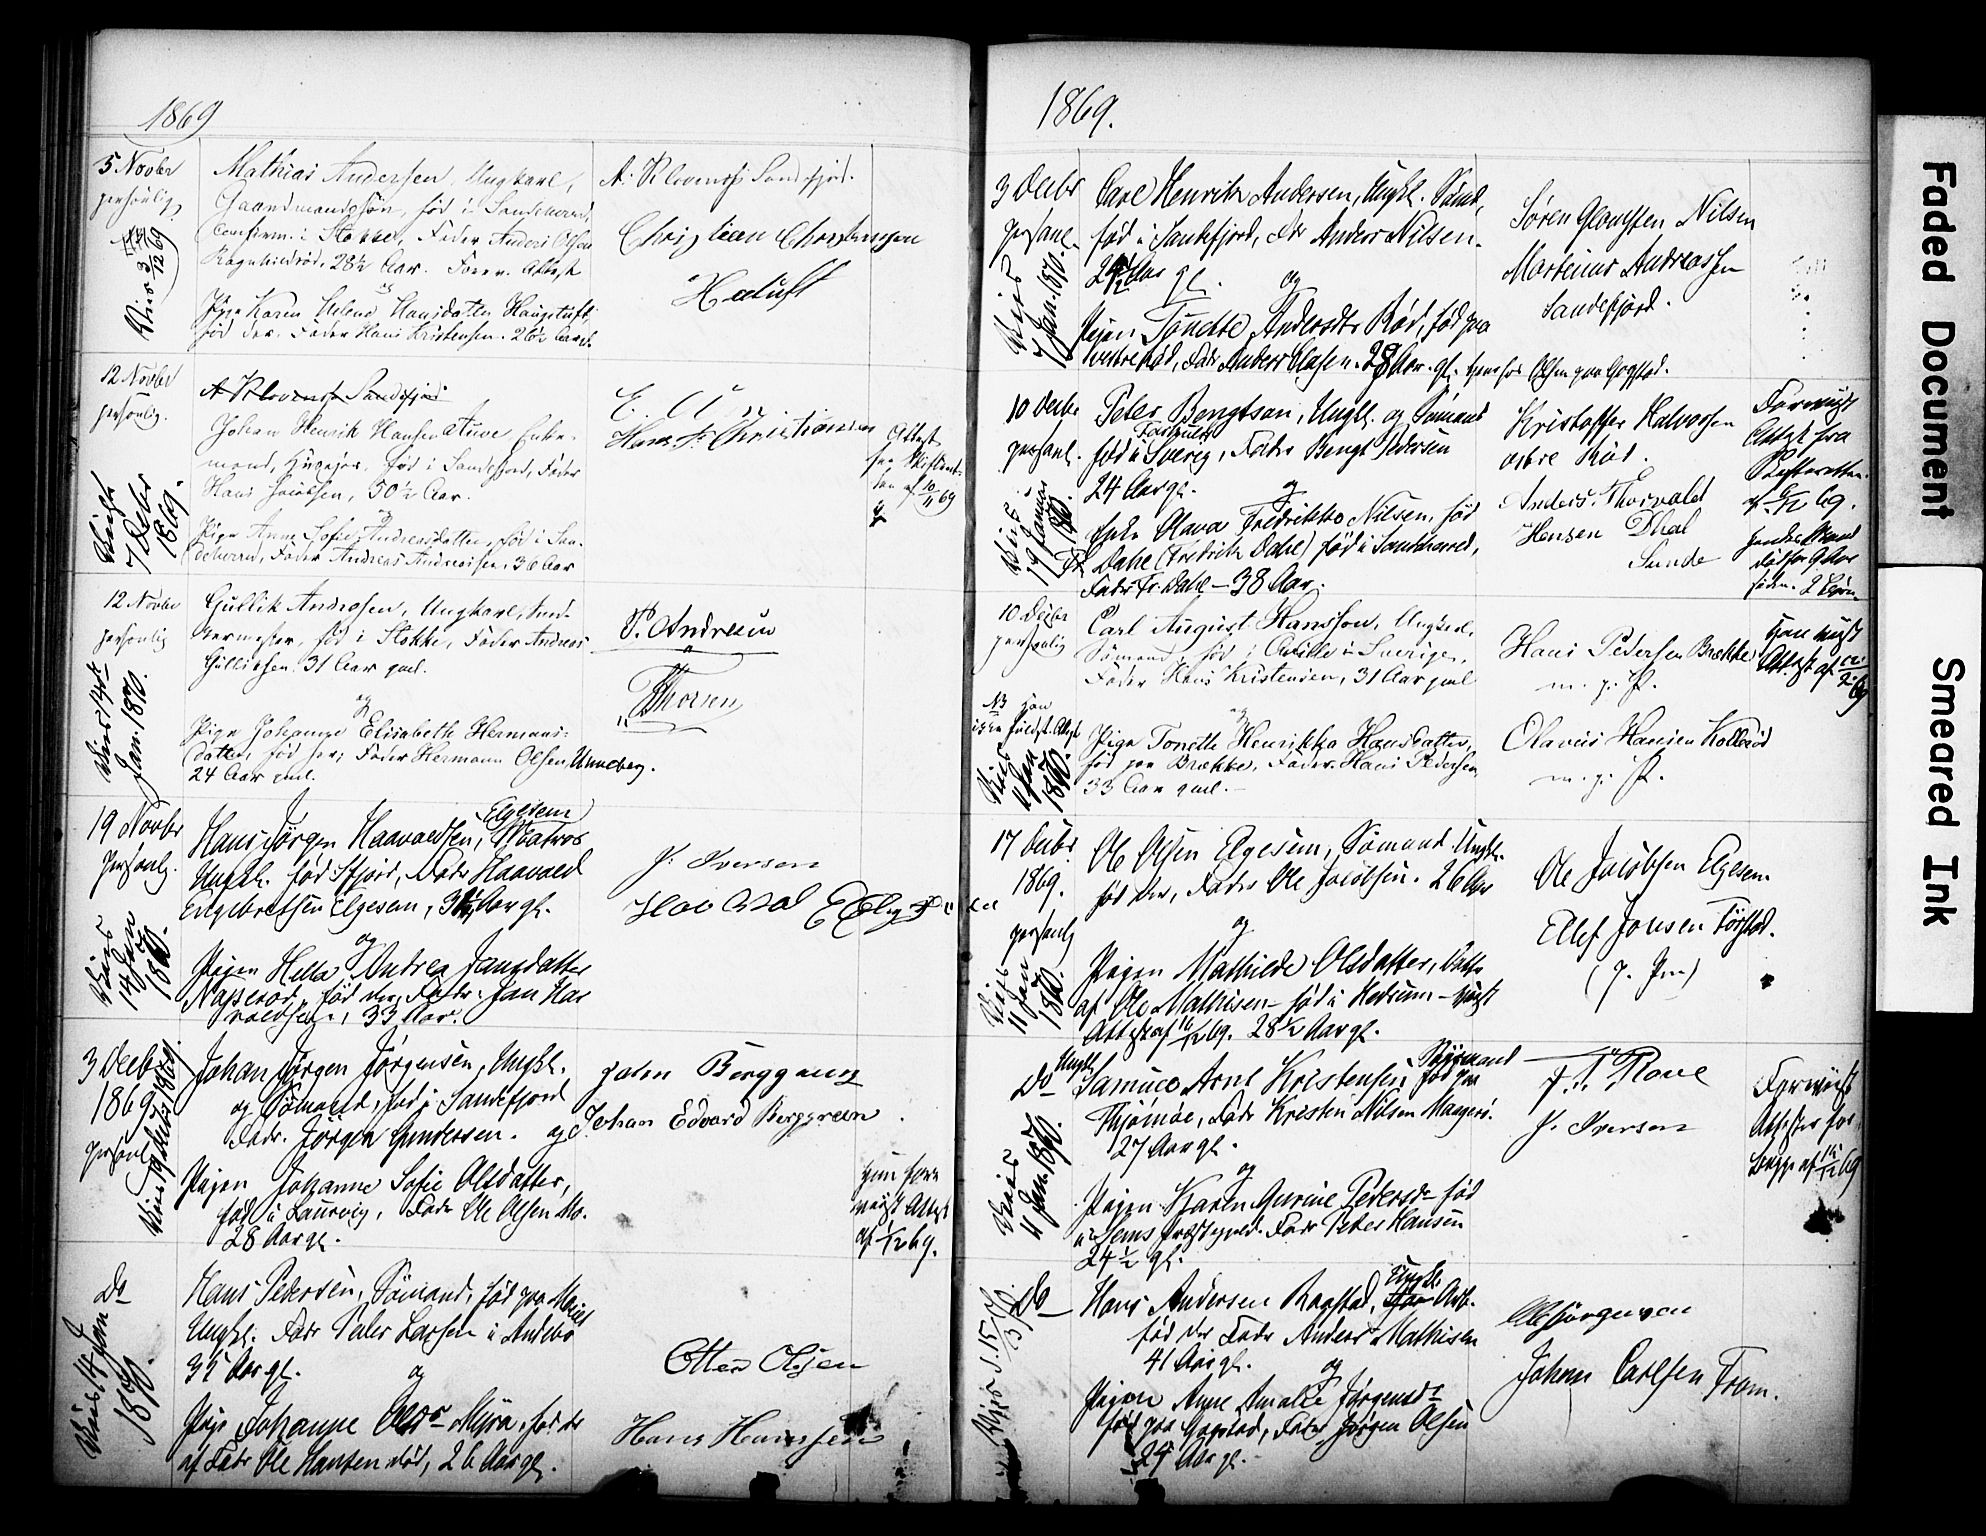 1869
5 Novbr
personlig
Viet 3/12 69
Mathias Andersen, Ungkarl,
Gaardmandssøn, fød i Sandeherred,
confirm. i Stokke, Fader Anders Olsen
28½ Aar. Forev. Attest
og
Pige Karen Helene Hansdatter Haugtuft,
fød der. Fader Hans Kristensen. 26½ Aar gl.
A. Klaveness Sandefjord.
Christian Christensen
Hotuft
12 Novbr
personlig.
Viet
7 Debr
1869.
A Klavenæs Sandefjord
Johan Henrik Hansen Auve Enke-
mand, fød i Sandefjord, Fader
Hans Jacobsen, 50½ Aar.
og
Pige Anne Sofie Andreasdatter, fød i San-
deherred, Fader Andreas Andreassen, 36 Aar
Hans Fr. Christiansen
Attest
fra Skifteret-
ten af 10/11 69
12 Novbr
personlig
Viet 14de
Jan. 1870.
Gullik Andresen, Ungkarl,
fød i Stokke, Fader Andreas
Gulliksen. 31 Aar gml.
og
Pige Johanne Elisabeth Hermans-
datter, fød her, Fader Hermann Olsen Unneberg.
24 Aar gml.
P. Andresen
Thorsen
19 Novbr
personlig.
Viet
14 Jan
1870.
Hans Jørgen Haavaldsen, Elgesem Matros
Ungkl. fød Sfjord, Fader Haavald
Engebretsen Elgesem, 31½ Aar gl.
og
Pigen Helle Andrea Jansdatter
Napserød, fød der, Fader Jan Har
valdsen, 33 Aar.
J. Iversen
Haavald E Elgesem
3 Decbr
1869
personl.
Viet 19 Decbr 1869.
Johan Jørgen Jørgensen, Ungkl.
og Sømand, fød i Sandefjord
Fader Jørgen Gundersen. og
Pigen Johanne Sofie Olsdatter,
fød i Laurvig, Fader Ole Olsen Mo.
28 Aar gl.
John Berggreen
Johan Edvard Berggreen
Hun forev
vist Attest
af 1/12 69.
Do
Viet 14 Jan
1870.
Hans Pedersen, Sømand, fød paa
Ungkl. Fader Peder Larsen i Andebo
35 Aar gl.
og
Pige Johanne Olsdr Myra, fød der
af Fader Ole Hansen død, 26 Aar gl.
Otter Olsen
Hans Hanssen
1869.
3 Decbr
personl.
Viet
7 Jan. 1870.
Carl Henrik Andersen, Ungkl. Sømd,
fød i Sandefjord, Fdr Anders Nilsen.
24½ Aar gl.
og
Pigen Tonette Andersdtr Rød, fød paa
vestre Rød, Fader Anders Olsen. 28 Aar gl. Olsen paa Gogstad.
Søren Nilsen
Martinus Andreassen
Sandefjord.
10 Decbr
personl.
Viet
19 Januar
1870.
Peter Bengtson, Ungkl. og Sømand
fød i Sverig, Fader Bengt Pedersen
24 Aar gl.
og
Enke Olava Fredrikke Nilsen, fød
Dahl (Fredrik Dahl) fød i Sandeherred,
Fader Fr. Dahl – 38 Aar.
Kristoffer Halvorsen
vestre Rød.
Anders Thorvald
Hensen Dhal
Sunde
Forevist
Attest fra
Skifteretten
af 6/12 69.
hendes Mand
død for 9 Aar
siden. 2 Børn
10 Decbr
personlig
Viet
11 Jan
1870.
Carl August Hansson, Ungkarl,
Sømand, fød i Qville i Sverige,
Fader Hans Kristensen, 31 Aar gml
og
Pige Tonette Henrikka Hansdatter,
fød paa Brække, Fader Hans Pedersen
33 Aar gml.
Hans Pedersen Brække
m. p. P.
Olavus Hansen Kolkerød
m. p. P.
Han vist
Attest af 69
17 Decbr
1869.
personlg
Viet
11 Jan
1870.
Ole Olsen Elgesem, Sømand Ungk.
fød der, Fader Ole Jacobsen. 26 Aar
og
Pigen Mathilde Olsdatter, Datter
af Ole Mathisen – fød i Hedrum – vist
Attest af 16/12 69. 28½ Aar gl.
Ole Jacobsen Elgesem
Ellef Jonsen Førstad.
(p. Pen)
Do
Viet
4 Jan. 1870.
Ungkl Styrmand
Samuel Arnt Kristensen, fød paa
Thjømøe, Fader Kristen Nilsen Mangerø.
27 Aar gl.
og
Pigen Karen Gurine Pedersdr fød
i Sems Præstegjeld. Fader Peder Hansen
24½ gl.
J. Iversen
Forevist
Attester for
begge af 69
Do
Viet d. 15/3 70.
Hans Andersen Raastad, Ungkl. Arb.
fød der Fader Anders Mathisen
41 Aar gl.
og
Pigen Anne Amalie Jørgensdr
fød paa Gogstad, Fader Jørgen Olsen
24 Aar gl.
Ole Jørgensen
Johan Carlsen Fram.
Faded Document
Smeared Ink